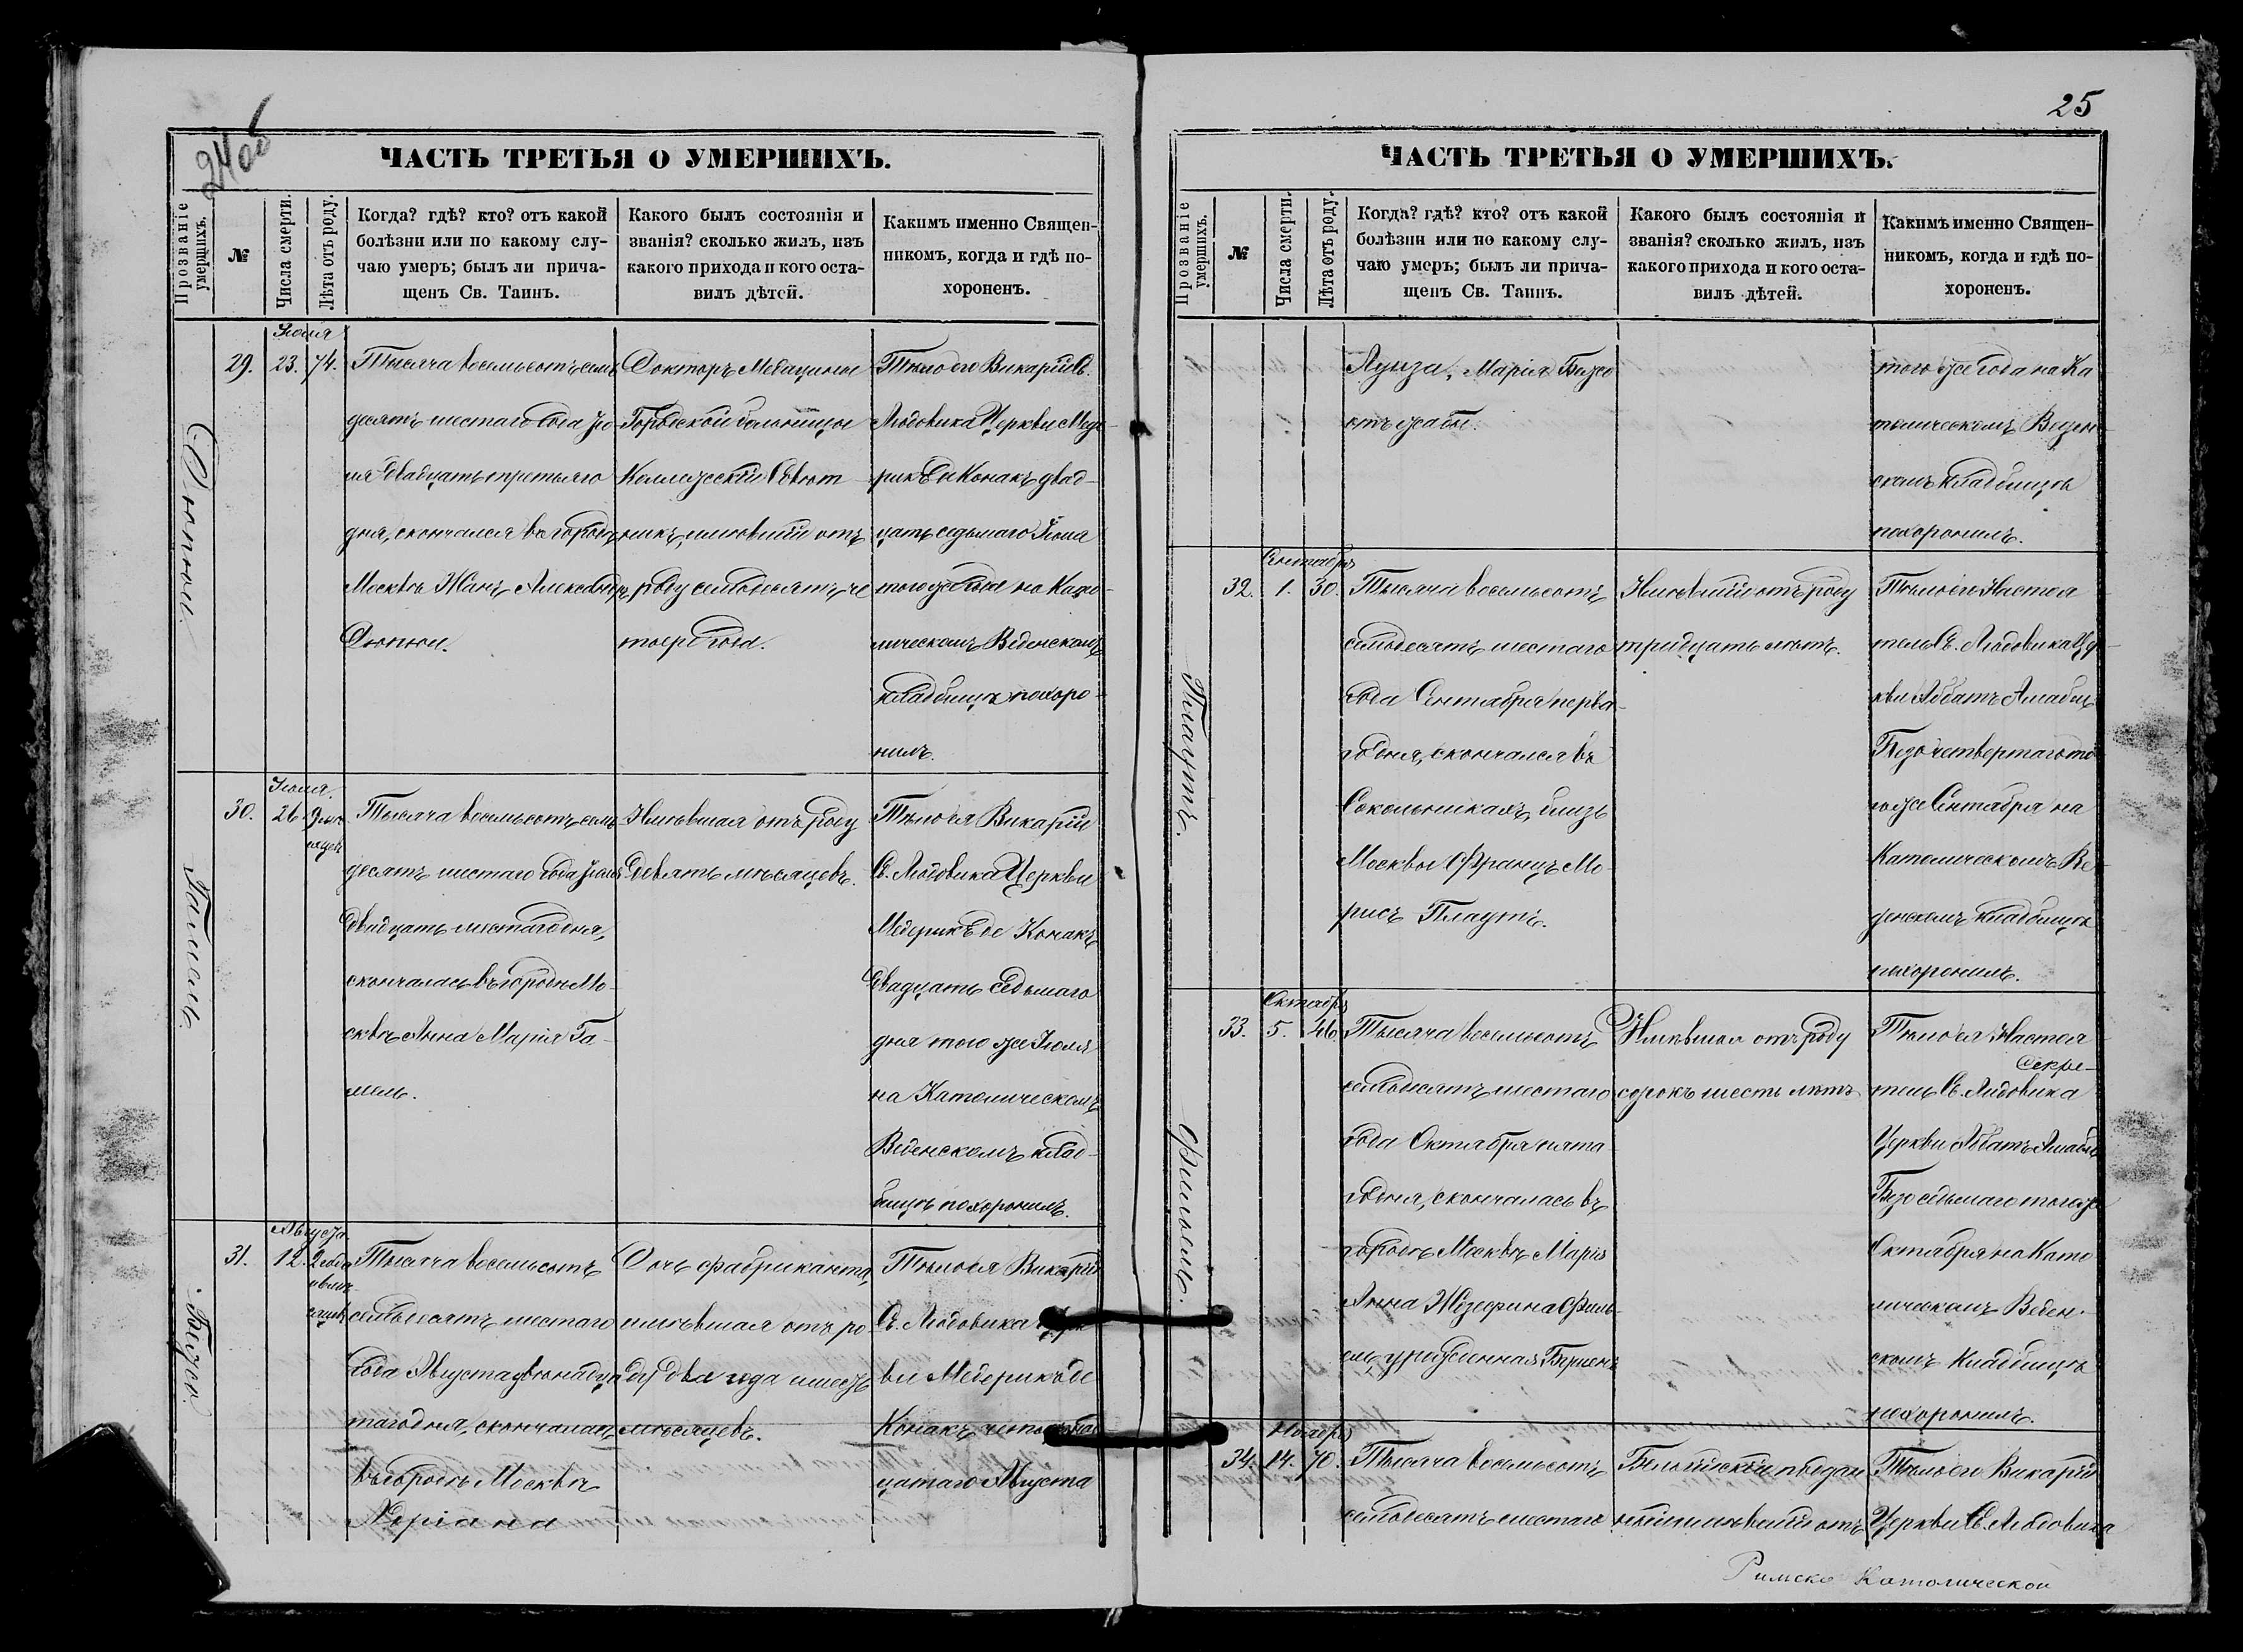 24 об
ЧАСТЬ ТРЕТЬЯ О УМЕРШИХЪ.
Прозваніе умершихъ.
№
Числа смерти.
Лѣта отъ роду.
Когда? гдѣ? кто? отъ какой
болѣзни или по какому слу-
чаю умеръ; былъ ли прича-
щенъ Св. Таинъ.
Какого былъ состоянія и
званія? сколько жилъ, изъ
какого прихода и кого оста-
вилъ дѣтей.
Какимъ именно Священ-
никомъ, когда и гдѣ по-
хороненъ.
Дюпюи.
Іюля
29. 23. 74.
Тысяча восемьсотъ семь
десятъ шестаго года Ію
ля двадцать третьяго
дня, скончался въ городѣ
Москвѣ Жанъ Александръ
Дюпюи.
Докторъ Медицины
Городской больницы
Коллежскій Совѣт
никъ, имѣвшій отъ
роду семьдесятъ че
тыре года.
Тѣло его Викарій Св.
Людовика Церкви Меде
рикъ де Конакъ двад-
цать седьмаго Іюля
того же года на Като-
лическомъ Веденскомъ
кладбищѣ похоро-
нилъ.
Гамель.
Іюля.
30. 26. 9 мѣ
сяцевъ
Тысяча восемьсотъ семь
десятъ шестаго года Іюля
двадцать шестаго дня,
скончалась въ городѣ Мо-
сквѣ Анна Марія Га-
мель.
Имѣвшая отъ роду
девять мѣсяцевъ.
Тѣло ея Викарій
Св. Людовика Церкви
Медерикъ де Конакъ
двадцать седьмаго
дня того же Іюля
на Католическомъ
Веденскомъ клад-
бищѣ похоронилъ.
Бизо.
Августа
31. 12. 2 года
Тысяча восемьсотъ
семьдесятъ шестаго
года Августа двѣнадца
таго дня, скончалась
въ городѣ Москвѣ
Адріана
Дочь фабриканта,
имѣвшая отъ ро-
ду два года и шесть
мѣсяцевъ.
Тѣло ея Викарій
Св. Людовика Церк
ви Медерикъ де
Конакъ четырнад
цатаго Августа
25
ЧАСТЬ ТРЕТЬЯ О УМЕРШИХЪ.
Прозваніе умершихъ.
№
Числа смерти.
Лѣта отъ роду.
Когда? гдѣ? кто? отъ какой
болѣзни или по какому слу-
чаю умеръ; былъ ли прича-
щенъ Св. Таинъ.
Какого былъ состоянія и
званія? сколько жилъ, изъ
какого прихода и кого оста-
вилъ дѣтей.
Какимъ именно Священ-
никомъ, когда и гдѣ по-
хороненъ.
Луиза, Марія Бизо
отъ жабы.
того же года на Ка
толическомъ Веден
скомъ кладбищѣ
похоронилъ.
Плаутъ.
Сентябрь
32. 1. 30.
Тысяча восемьсотъ
семьдесятъ шестаго
года Сентября перва-
го дня, скончался въ
Сокольникахъ, близь
Москвы Францъ Мо-
рисъ Плаутъ.
Имѣвшій отъ роду
тридцать лѣтъ.
Тѣло его Настоя
тель Св. Людовика Цер-
кви Аббатъ Амабль
четвертаго то
го же Сентября на
Католическомъ Ве-
денскомъ кладбищѣ
похоронилъ.
Фильоль.
Октябрь
33. 5. 46.
Тысяча восемьсотъ
семьдесятъ шестаго
года Октября пята-
го дня, скончалась въ
городѣ Москвѣ Марія
Анна Жозефина Филь-
оль, урожденная
Имѣвшая отъ роду
сорокъ шесть лѣтъ
Тѣло ея Настоя
тель Св. Людовика
Церкви Аббатъ Амабль
седьмаго того же
Октября на Като
лическомъ Веден-
скомъ Кладбищѣ
похоронилъ.
Ноябрь
34. 14. 70.
Тысяча восемьсотъ
семьдесятъ шестаго
Бельгійскій поддан
ный имѣвшій отъ
Тѣло его Викарій
Церкви Св. Людовика
Римско Католической